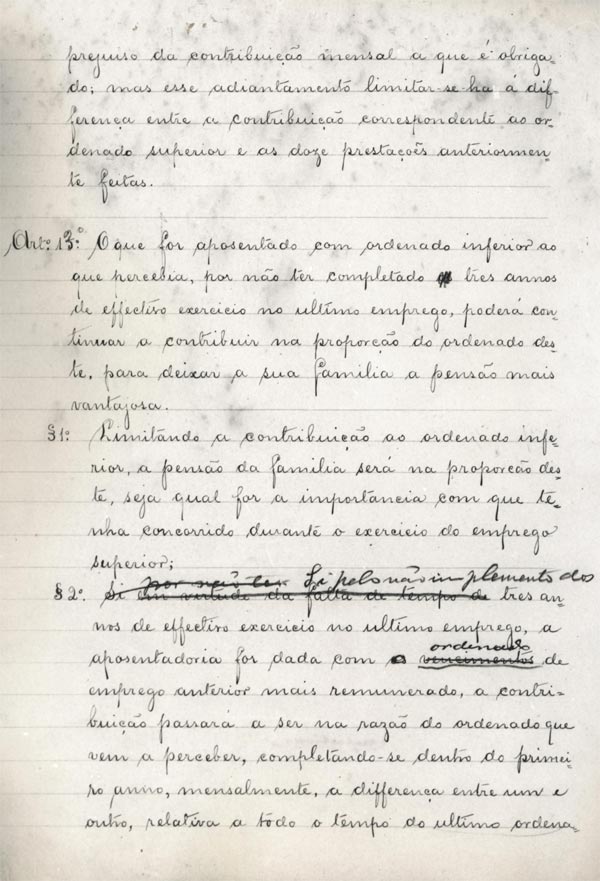 prejuiso da contribuição mensal a que é obriga-
do; mas esse adiantamento limitar-se-ha á dif-
ferença entre a contribuição correspondente ao or-
denado superior e as doze prestações anteriormen-
te feitas.
Art.º 13.º O que for aposentado com ordenado inferior ao
que percebia, por não ter completado tres annos
de effectivo exercicio no ultimo emprego, poderá con-
tinuar a contribuir na proporção do ordenado des-
te, para deixar a sua familia a pensão mais
vantajosa.
§ 1º. Limitando a contribuição ao ordenado infe-
rior, a pensão da familia será na proporcão des-
te, seja qual for a importancia com que te-
nha concorrido durante o exercicio do emprego
superior;
por não ter Si pelo não implemento dos
§ 2º. Si em virtude da falta de tempo de tres an-
nos de effectivo exercicio no ultimo emprego, a
ordenado
aposentadoria for dada com o vencimentos de
emprego anterior mais remunerado, a contri-
buição passará a ser na razão do ordenado que
vem a perceber, completando-se dentro do primei-
ro anno, mensalmente, a differença entre um e
outro, relativa a todo o tempo do ultimo ordena-